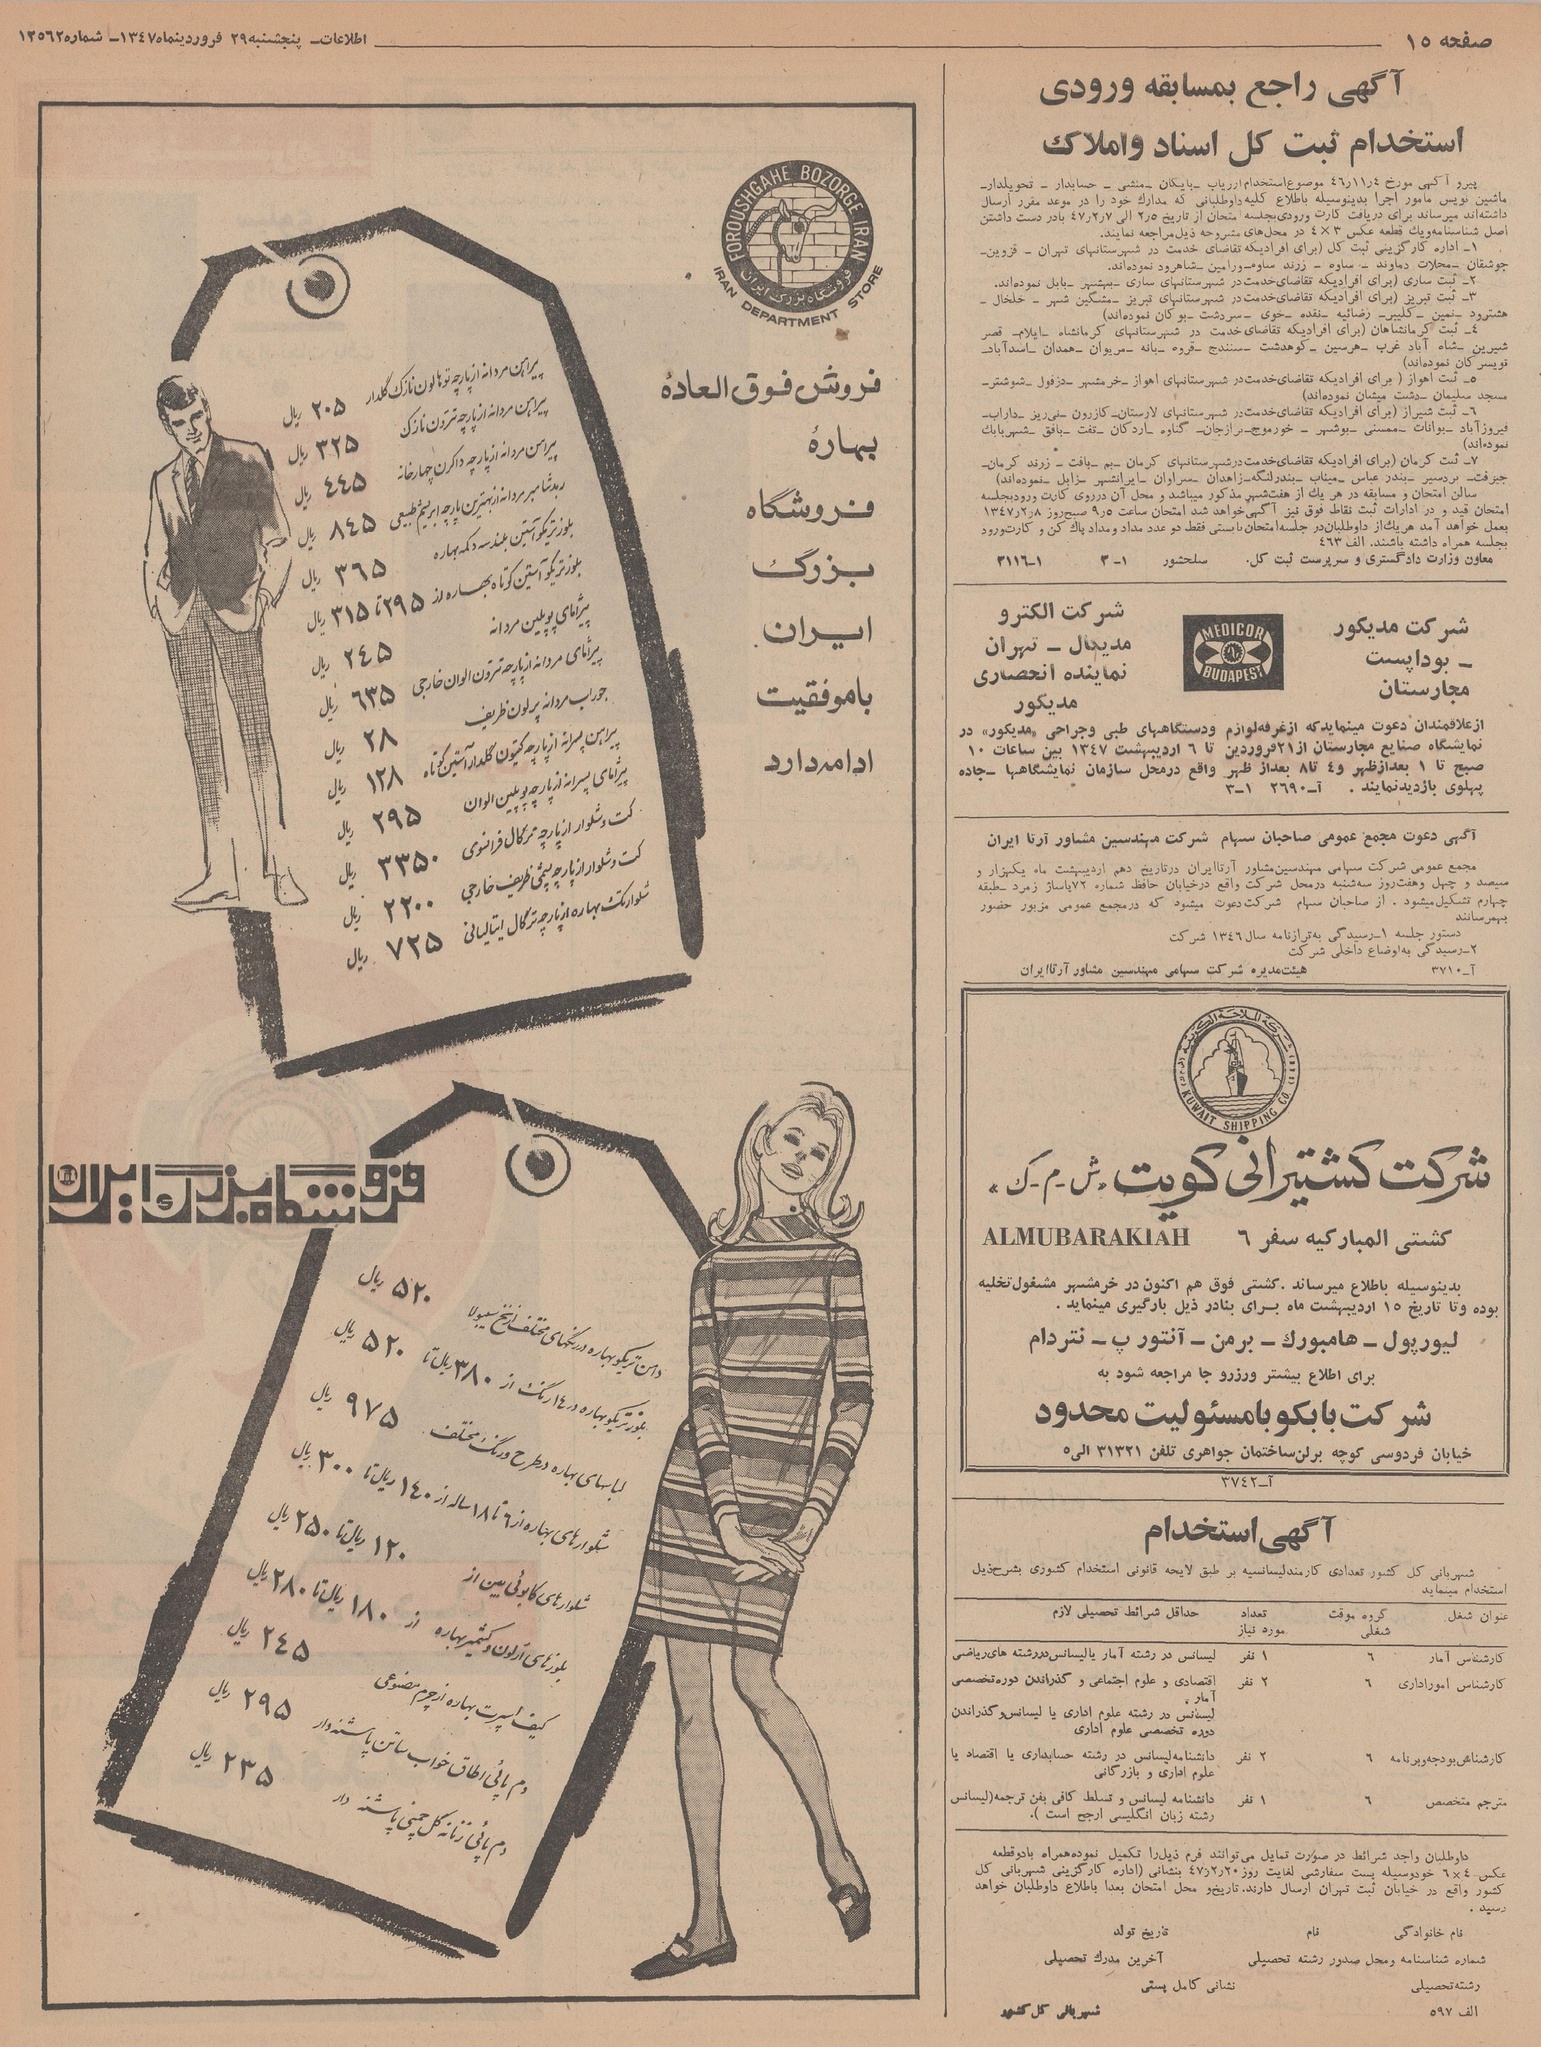 صفحه ۱۵
اطلاعات_ پنجشنبه ۲۹ فروردینماه ۱۳۴۷_ شماره ۱۲۵۶۲
آگهی راجع بمسابقه ورودی
استخدام ثبت کل اسناد و املاک
پیرو آگهی مورخ ۴۶٫۱۱٫۴ موضوع استخدام ارزیاب _ بایگان _ منشی _ حسابدار _ تحویلدار_
ماشین نویس مامور اجرا بدینوسیله باطلاع کلیه داوطلبانی که مدارک خود را در موعد مقرر ارسال
داشته‌اند میرساند برای دریافت کارت ورودی بجلسه امتحان از تاریخ ۲٫۵ الی ۴۷٫۲٫۷ با در دست داشتن
اصل شناسنامه و یک قطعه عکس ۳×۴ در محل‌های مشروحه ذیل مراجعه نمایند.
۱_ اداره کارگزینی ثبت کل (برای افرادیکه تقاضای خدمت در شهرستانهای تهران _ قزوین_
جوشقان _محلات دماوند _ ساوه _ زرند ساوه_ ورامین _شاهرود نموده‌اند.
۲_ ثبت ساری (برای افرادیکه تقاضای خدمت در شهرستانهای ساری _بهشهر _بابل نموده‌اند.
۳_ ثبت تبریز (برای افرادیکه تقاضای خدمت در شهرستانهای تبریز _مشگین شهر _ خلخال_
هشترود _نمین _کلیبر_ رضائیه _ نقده _خوی _ سردشت _بوکان نموده‌اند)
۴_ ثبت کرمانشاهان (برای افرادیکه تقاضای خدمت در شهرستانهای کرمانشاه _ایلام_ قصر
شیرین _شاه آباد غرب _هرسین _کوهدشت _سنندج _قروه _بانه _مریوان _همدان _اسدآباد_
تویسرکان نموده‌اند)
۵_ ثبت اهواز ( برای افرادیکه تقاضای خدمت در شهرستانهای اهواز _خرمشهر _دزفول _شوشتر_
مسجد سلیمان _دشت میشان نموده‌اند)
۶_ ثبت شیراز (برای افرادیکه تقاضای خدمت در شهرستانهای لارستان_ کازرون _نی‌ریز _داراب_
فیروزآباد _بوانات _ممسنی _بوشهر _ خورموج_ برازجان_ گناوه _اردکان _تفت _بافق _شهربابک
نموده‌اند)
۷_ ثبت کرمان (برای افرادیکه تقاضای خدمت در شهرستانهای کرمان _بم _بافت _ زرند کرمان_
جیرفت_ بردسیر _بندر عباس _میناب _بندرلنگه _زاهدان _سراوان _ایرانشهر _زابل _نموده‌اند)
سالن امتحان و مسابقه در هر یک از هفت شهر مذکور میباشد و محل آن در روی کارت ورود بجلسه
امتحان قید و در ادارات ثبت نقاط فوق نیز آگهی خواهد شد امتحان ساعت ۹٫۵ صبح روز ۱۳۴۷٫۲٫۸
بعمل خواهد آمد هر یک از داوطلبان در جلسه امتحان بایستی فقط دو عدد مداد و مداد پاک کن و کارت ورود
بجلسه همراه داشته باشند. الف ۴۶۳
معاون وزارت دادگستری و سرپرست ثبت کل. سلحشور ۱_۳ ۱_۳۱۱۶
شرکت مدیکور
_ بوداپست
مجارستان
MEDICOR
BUDAPEST
شرکت الکترو
مدیکال _ تهران
نماینده انحصاری
مدیکور
از علاقمندان دعوت مینماید که از غرفه لوازم و دستگاههای طبی و جراحی «مدیکور» در
نمایشگاه صنایع مجارستان از ۲۱ فروردین تا ۶ اردیبهشت ۱۳۴۷ بین ساعات ۱۰
صبح تا ۱ بعدازظهر و ۴ تا ۸ بعداز ظهر واقع در محل سازمان نمایشگاهها _جاده
پهلوی بازدید نمایند . آ_۲۶۹۰ ۱_۳
آگهی دعوت مجمع عمومی صاحبان سهام شرکت مهندسین مشاور آرتا ایران
مجمع عمومی شرکت سهامی مهندسین مشاور آرتا ایران در تاریخ دهم اردیبهشت ماه یکهزار و
سیصد و چهل و هفت روز سه‌شنبه در محل شرکت واقع در خیابان حافظ شماره ۷۲ پاساژ زمرد _طبقه
چهارم تشکیل میشود . از صاحبان سهام شرکت دعوت میشود که در مجمع عمومی مزبور حضور
بهمرسانند
دستور جلسه ۱_رسیدگی به ترازنامه سال ۱۳۴۶ شرکت
۲_رسیدگی به اوضاع داخلی شرکت
آ_۳۷۱۰ هیئت مدیره شرکت سهامی مهندسین مشاور آرتا ایران
شركة الملاحة الكويتية
KUWAIT SHIPPING CO.
شرکت کشتیرانی کویت «ش-م-ک»
کشتی المبارکیه سفر ۶ ALMUBARAKIAH
بدینوسیله باطلاع میرساند .کشتی فوق هم اکنون در خرمشهر مشغول تخلیه
بوده و تا تاریخ ۱۵ اردیبهشت ماه برای بنادر ذیل بارگیری مینماید .
لیورپول _ هامبورک _ برمن _ آنتورپ _ نتردام
برای اطلاع بیشتر و رزرو جا مراجعه شود به
شرکت بابکو با مسئولیت محدود
خیابان فردوسی کوچه برلن ساختمان جواهری تلفن ۳۱۳۲۱ الی ۵
آ_۳۷۴۲
آگهی استخدام
شهربانی کل کشور تعدادی کارمند لیسانسیه بر طبق لایحه قانونی استخدام کشوری بشرح ذیل
استخدام مینماید
عنوان شغل گروه موقت شغلی تعداد مورد نیاز حداقل شرائط تحصیلی لازم
کارشناس آمار ۶ ۱ نفر لیسانس در رشته آمار یا لیسانس در رشته های ریاضی
اقتصادی و علوم اجتماعی و گذراندن دوره تخصصی
آمار .
کارشناس امور اداری ۶ ۲ نفر لیسانس در رشته علوم اداری یا لیسانس و گذراندن
دوره تخصصی علوم اداری
کارشناس بودجه و برنامه ۶ ۲ نفر دانشنامه لیسانس در رشته حسابداری یا اقتصاد یا
علوم اداری و بازرگانی
مترجم متخصص ۶ ۱ نفر دانشنامه لیسانس و تسلط کافی بفن ترجمه (لیسانس
رشته زبان انگلیسی ارجح است ).
داوطلبان واجد شرائط در صورت تمایل می‌توانند فرم ذیل را تکمیل نموده همراه با دو قطعه
عکس ۴×۶ خود وسیله پست سفارشی لغایت روز ۴۷٫۲٫۲۰ بنشانی (اداره کارگزینی شهربانی کل
کشور واقع در خیابان ثبت تهران ارسال دارند. تاریخ و محل امتحان بعدا باطلاع داوطلبان خواهد
رسید .
نام خانوادگی نام تاریخ تولد
شماره شناسنامه و محل صدور رشته تحصیلی آخرین مدرک تحصیلی
رشته تحصیلی نشانی کامل پستی
الف ۵۹۷ شهربانی کل کشور
FOROUSHGAHE BOZORGE IRAN
فروشگاه بزرگ ایران
IRAN DEPARTMENT STORE
فروش فوق العادهٔ
بهارهٔ
فروشگاه
بزرگ
ایران
با موفقیت
ادامه دارد
پیراهن مردانه از پارچه توهالون نازک گلدار ۲۰۵ ریال
پیراهن مردانه از پارچه تترون نازک ۳۲۵ ریال
پیراهن مردانه از پارچه داکرن چهارخانه ۴۴۵ ریال
ربدشامبر مردانه از بهترین پارچه ابریشم طبیعی ۸۴۵ ریال
بلوز تریکو آستین بلند سه دکمه بهاره ۳۶۵ ریال
بلوز تریکو آستین کوتاه بهاره از ۲۹۵ تا ۳۱۵ ریال
پیژامای پوپلین مردانه ۲۴۵ ریال
پیژامای مردانه از پارچه تترون الوان خارجی ۶۳۵ ریال
جوراب مردانه پرلون ظریف ۲۸ ریال
پیراهن پسرانه از پارچه کتون گلدار آستین کوتاه ۱۲۸ ریال
پیژامای پسرانه از پارچه پوپلین الوان ۲۹۵ ریال
کت و شلوار از پارچه ترگال فرانسوی ۳۳۵۰ ریال
کت و شلوار از پارچه پشمی ظریف خارجی ۲۲۰۰ ریال
شلوار تک بهاره از پارچه ترگال ایتالیائی ۷۲۵ ریال
فروشگاه بزرگ ایران
دامن تریکو بهاره در رنگهای مختلف از نخ سیبولا ۵۲۰ ریال
بلوز تریکو بهاره در ۱۴ رنگ از ۳۸۰ ریال تا ۵۲۰ ریال
لباسهای بهاره در طرح و رنگ مختلف ۹۷۵ ریال
شلوارهای بهاره از ۶ تا ۱۸ ساله از ۱۴۰ ریال تا ۳۰۰ ریال
شلوارهای کابوئی بین از ۱۲۰ ریال تا ۲۵۰ ریال
بلوزهای آرلون و کشمیر بهاره از ۱۸۰ ریال تا ۲۸۰ ریال
کیف اسپرت بهاره از چرم مصنوعی ۲۴۵ ریال
دم پائی اطاق خواب ساتن پاشنه دار ۲۹۵ ریال
دم پائی زنانه گل چینی پاشنه دار ۲۳۵ ریال